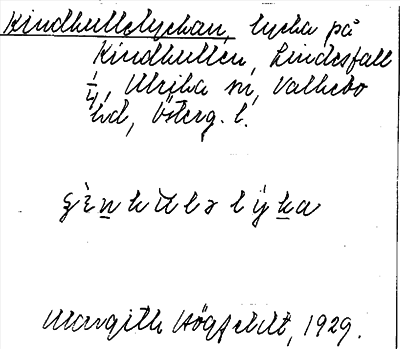 Kindhullelyckan, lycka på
Kindhullen, Lindesfall
1/4, Ulrika sn, Valkebo
hd, Österg. l.
Margith Högfeldt, 1929.